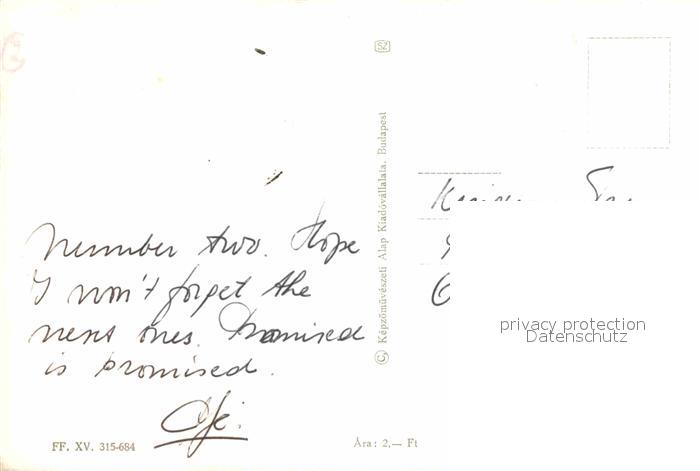 SZ
Number two. Hope
I won't forget the
next ones. Promised
is promised.
© Képzőművészeti Alap Kiadóvállalata, Budapest
privacy protection
Datenschutz
FF. XV. 315-684
Ára: 2,— Ft